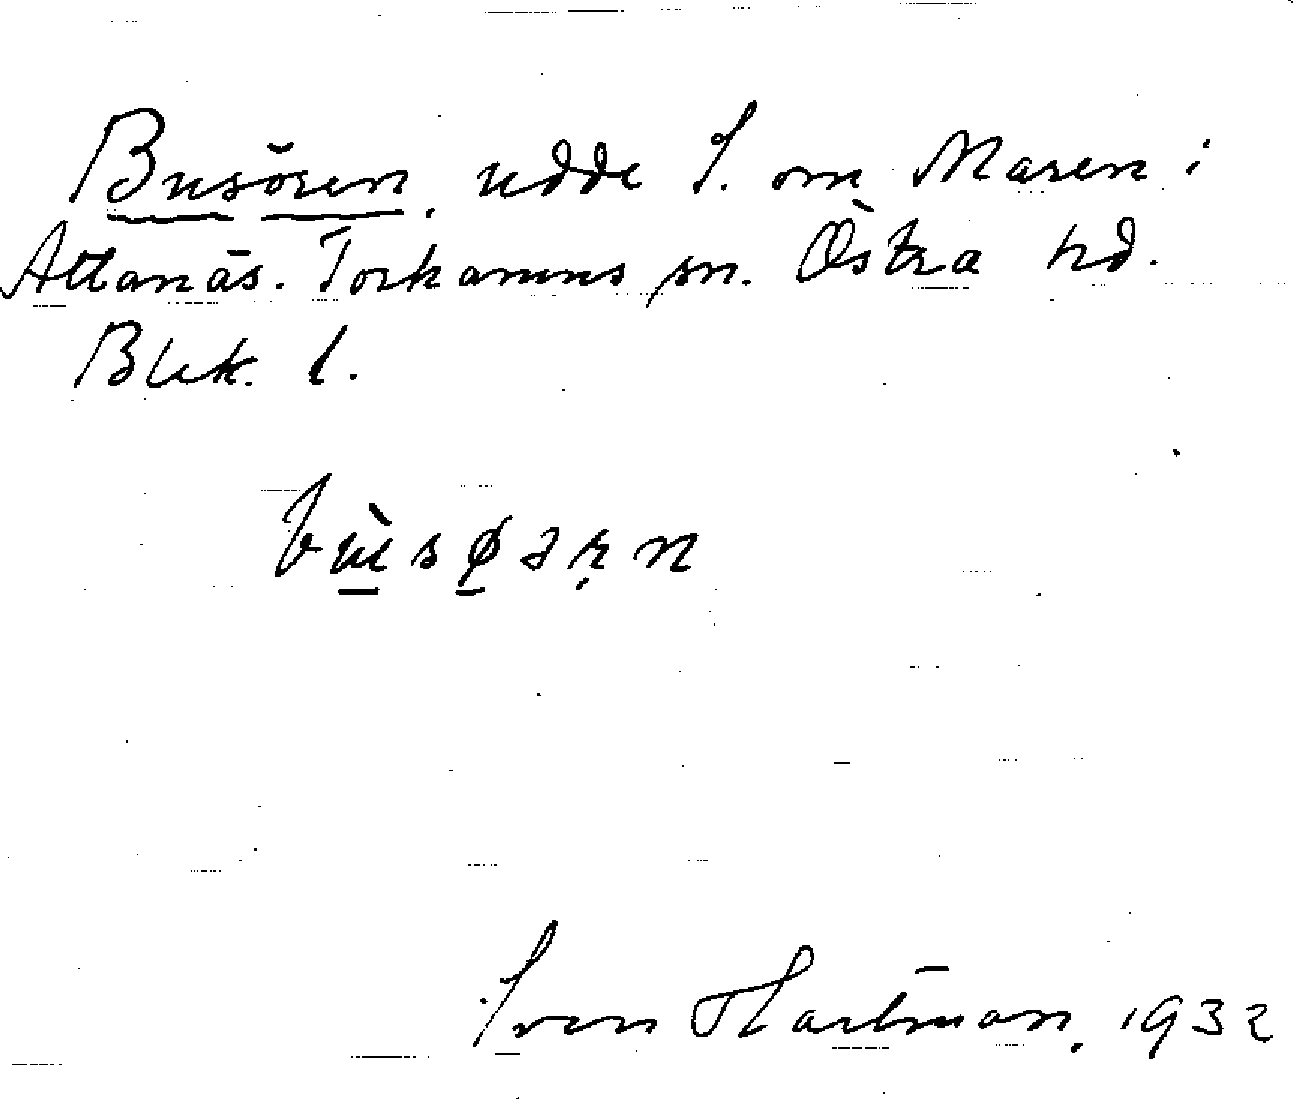 Busören, udde S. om Maren i
Attanäs. Torhamns sn. Östra hd.
Blek. l.
bùsøərn
Sven Hartman, 1932